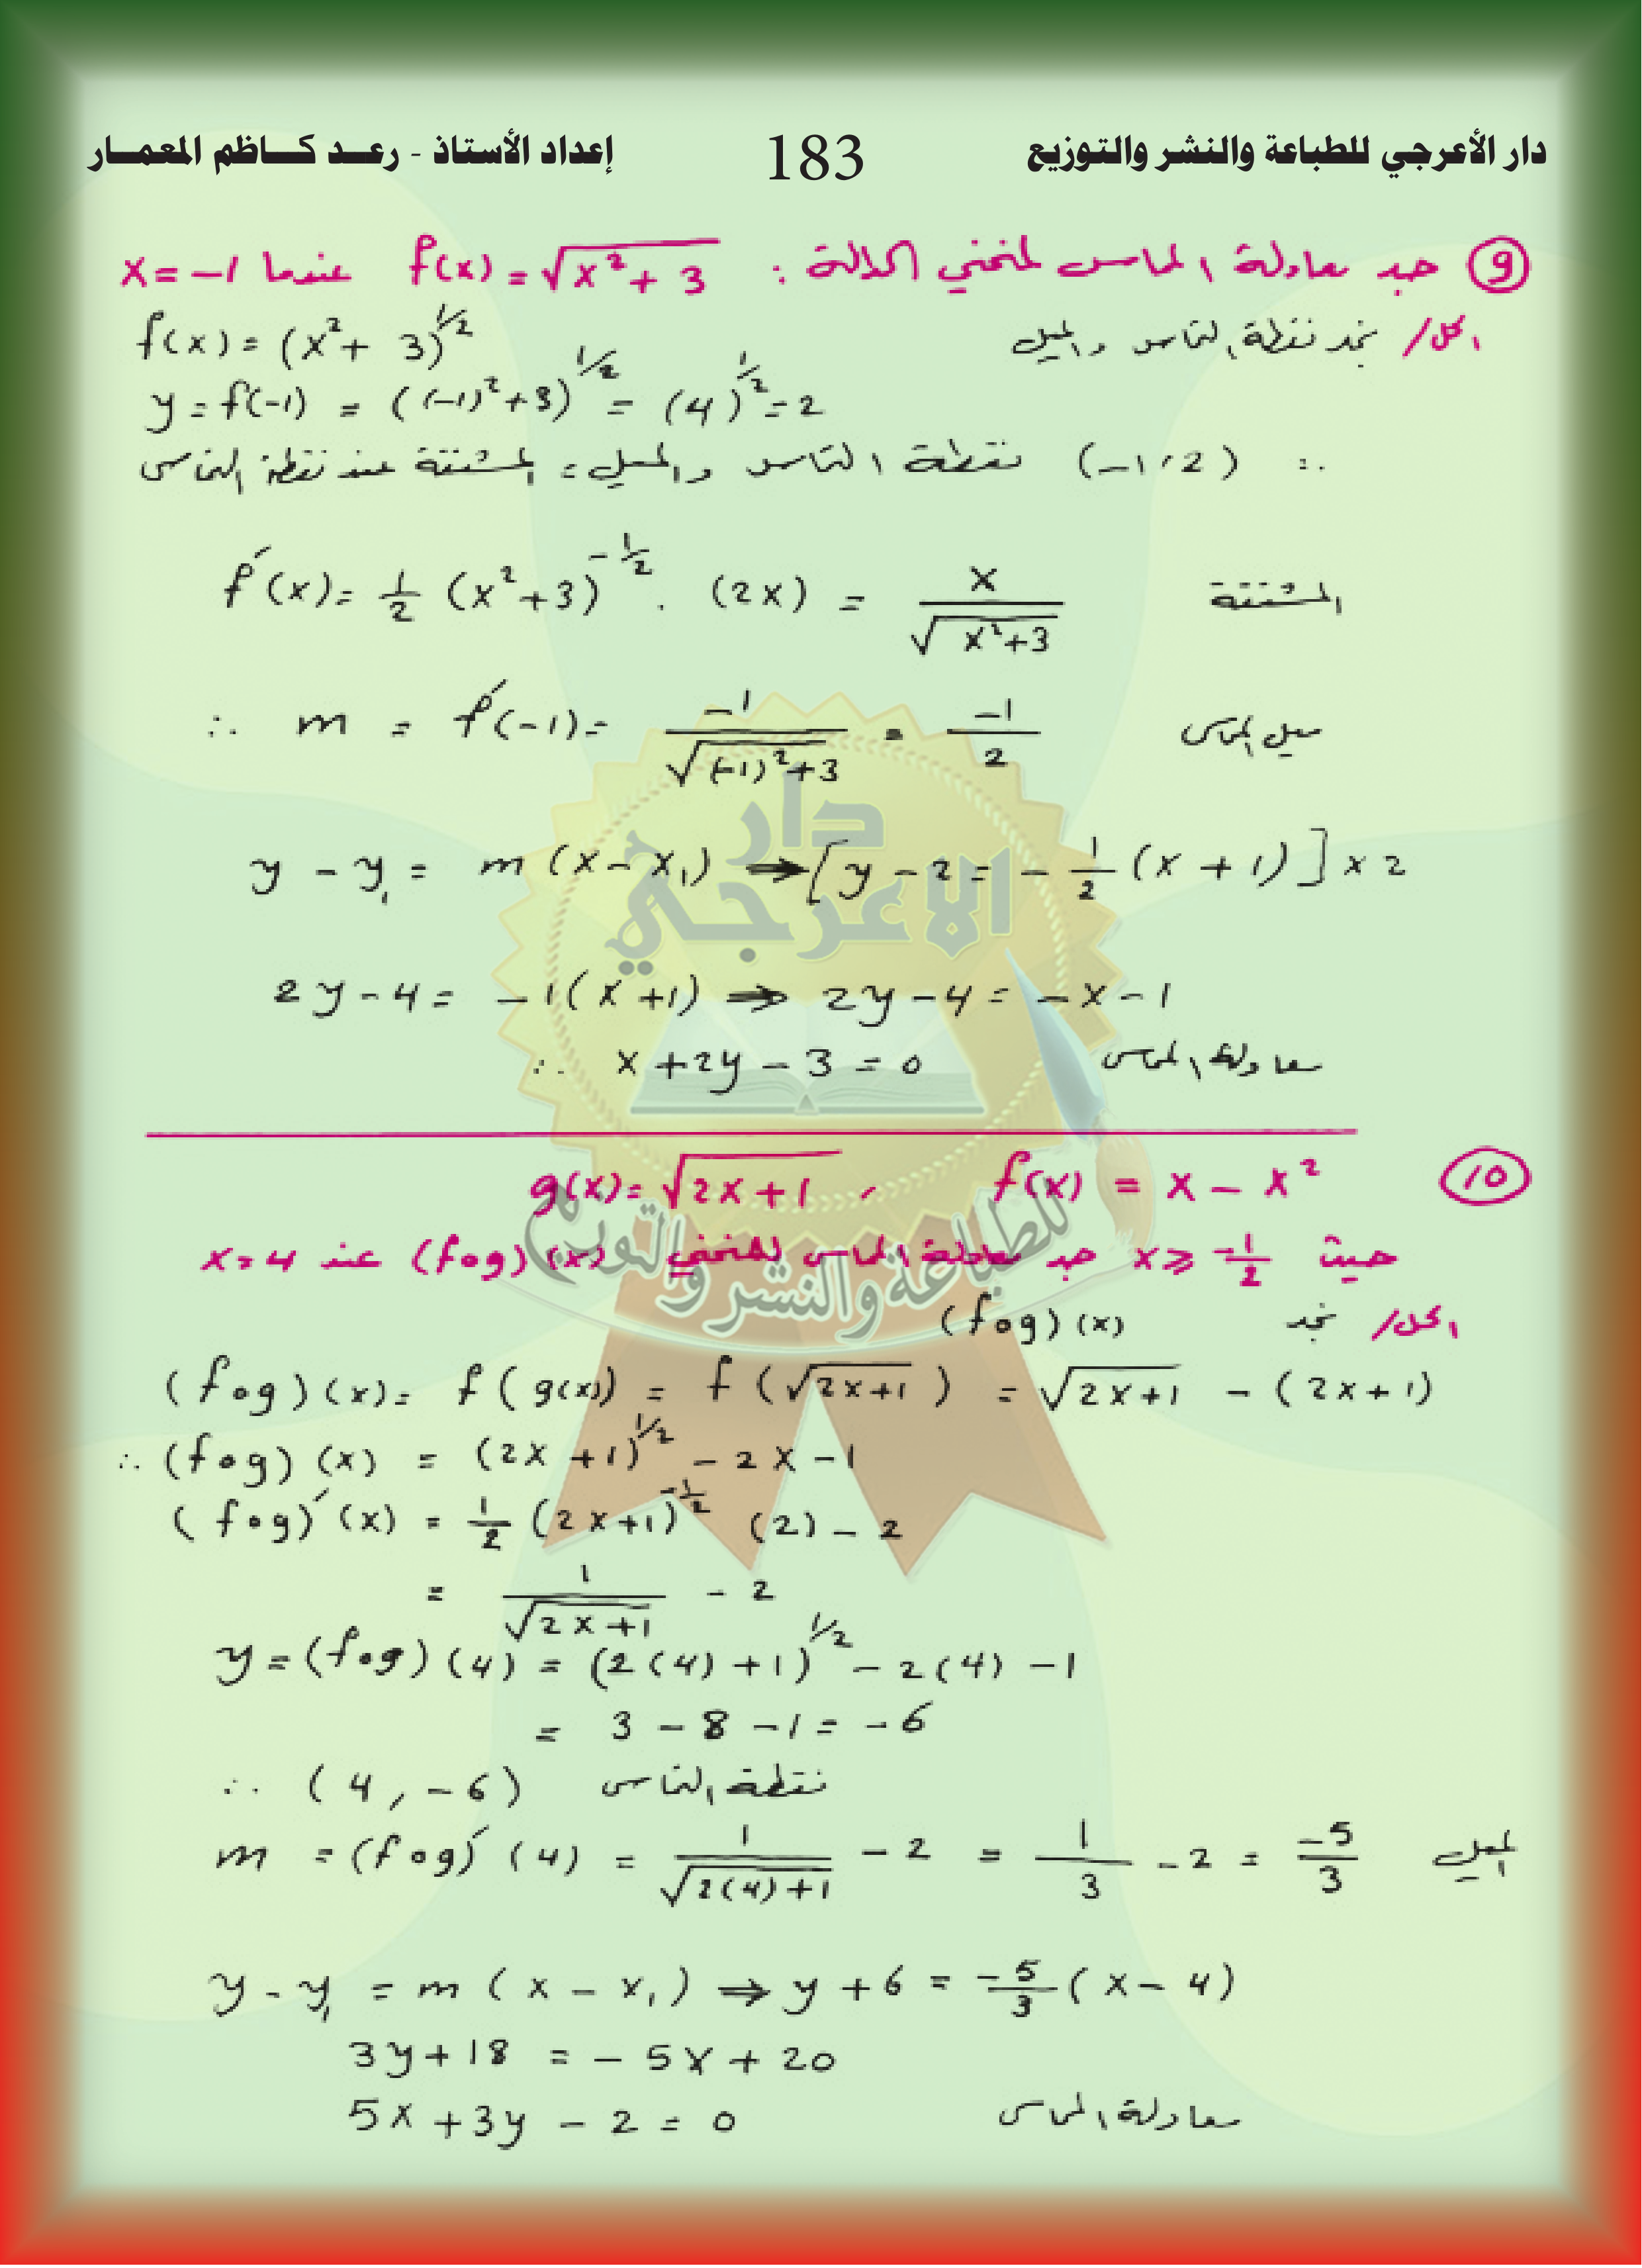 دار الأعرجي للطباعة والنشر والتوزيع 183 إعداد الأستاذ - رعـد كـاظم المعمـار
⑨ جد معادلة المماس لمنحني الدالة : f(x) = √(x²+3) عندما x = -1
الحل/ نجد نقطة التماس والميل
f(x) = (x²+3)^½
y = f(-1) = ((-1)²+3)^½ = (4)^½ = 2
∴ (-1, 2) نقطة التماس والميل = المشتقة عند نقطة التماس
f′(x) = ½ (x²+3)^-½ . (2x) = x/√(x²+3) المشتقة
∴ m = f′(-1) = -1/√((-1)²+3) = -1/2 ميل المماس
y - y₁ = m(x - x₁) ⇒ [y - 2 = -½(x+1)] × 2
2y - 4 = -1(x+1) ⇒ 2y - 4 = -x - 1
∴ x + 2y - 3 = 0 معادلة المماس
⑩ f(x) = x - x² , g(x) = √(2x+1)
حيث x ≥ -1/2 جد معادلة المماس لمنحني (fog)(x) عند x = 4
الحل/ نجد (fog)(x)
(fog)(x) = f(g(x)) = f(√(2x+1)) = √(2x+1) - (2x+1)
∴ (fog)(x) = (2x+1)^½ - 2x - 1
(fog)′(x) = ½ (2x+1)^-½ (2) - 2
= 1/√(2x+1) - 2
y = (fog)(4) = (2(4)+1)^½ - 2(4) - 1
= 3 - 8 - 1 = -6
∴ (4, -6) نقطة التماس
m = (fog)′(4) = 1/√(2(4)+1) - 2 = 1/3 - 2 = -5/3 الميل
y - y₁ = m(x - x₁) ⇒ y + 6 = -5/3 (x - 4)
3y + 18 = -5x + 20
5x + 3y - 2 = 0 معادلة المماس
دار
الاعرجي
للطباعة والنشر والتوزيع